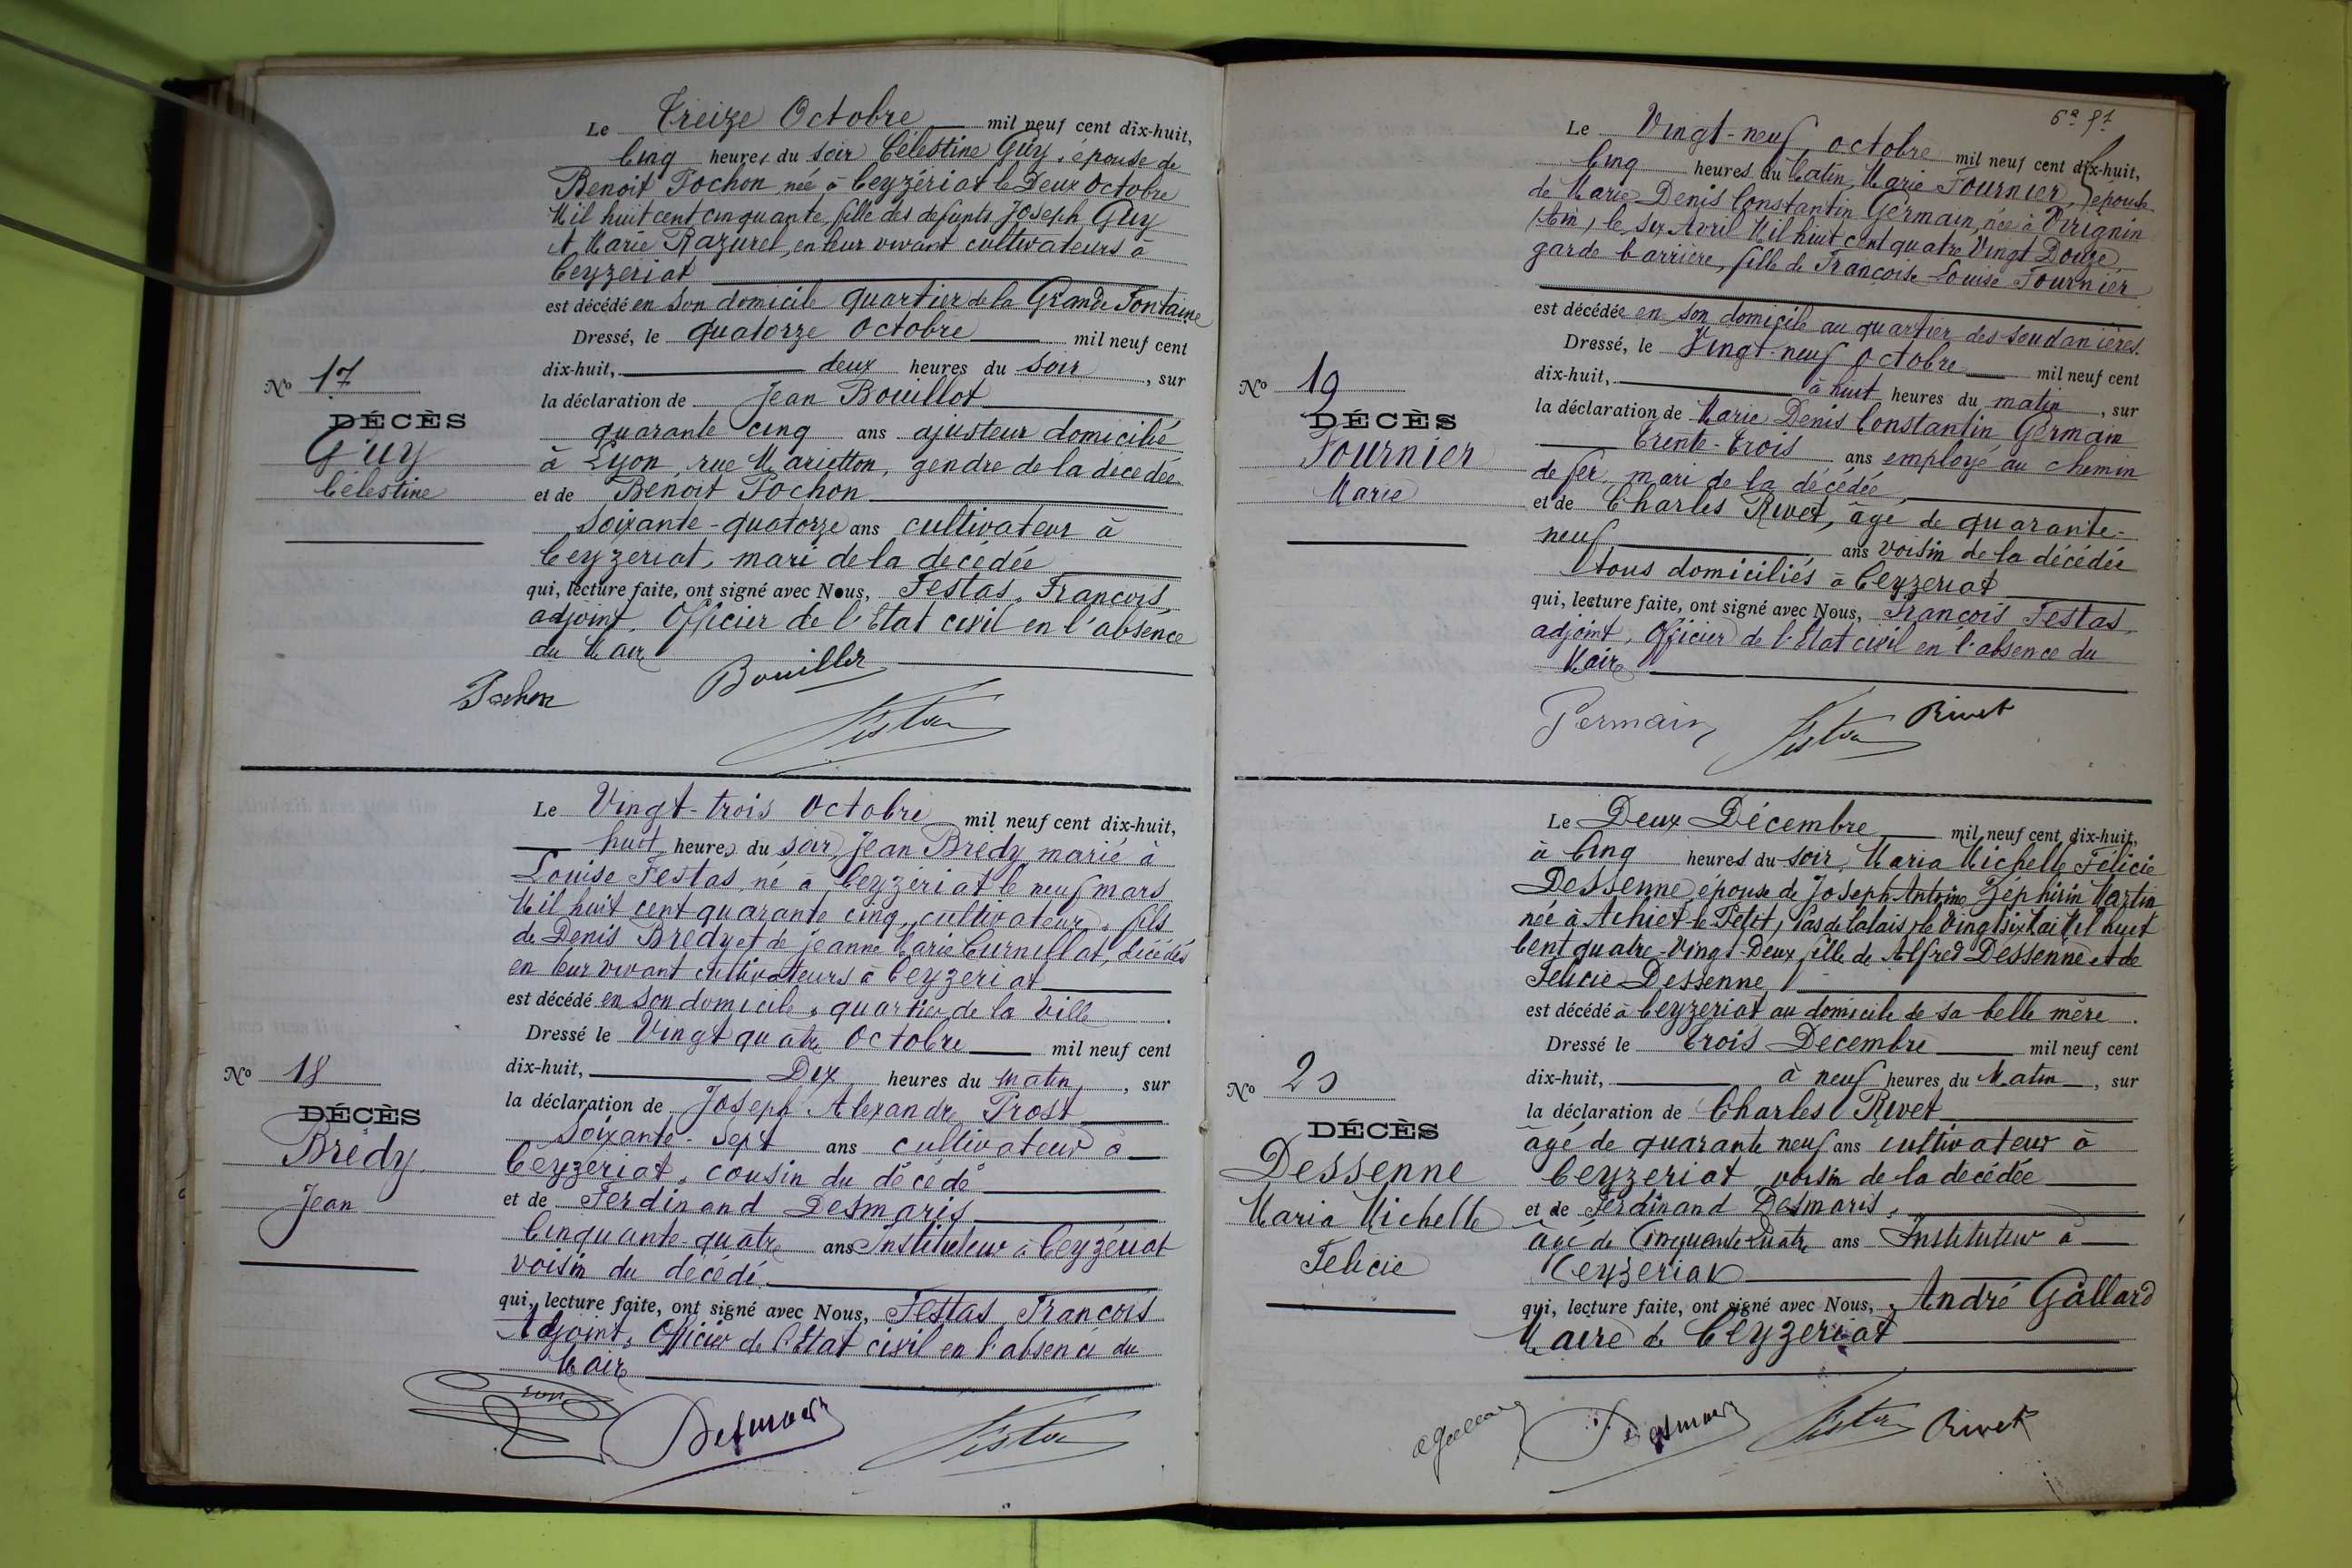 Le Treize Octobre mil neuf cent dix-huit,
Cinq heures du soir Célestine Guy, épouse de
Benoit Pochon née à Ceyzériat le Deux Octobre
Mil huit cent cinquante, fille des defunts Joseph Guy
et Marie Razurel, en leur vivant cultivateurs à
Ceyzeriat
est décédé en son domicile quartier de la Grande Fontaine
Dressé, le quatorze Octobre mil neuf cent
dix-huit, deux heures du soir, sur
la déclaration de Jean Bouillot
quarante cinq ans ajusteur domicilié
à Lyon, rue Marietton, gendre de la décedée
et de Benoit Pochon
soixante-quatorze ans cultivateur à
Ceyzeriat, mari de la decédée
qui, lecture faite, ont signé avec Nous, Festas, François,
adjoint, Officier de l'Etat civil en l'absence
du Maire
Pochon Bouillot
Festas
No 17
DÉCÈS
Guy
Célestine
Le Vingt-trois Octobre mil neuf cent dix-huit,
huit heures du soir, Jean Brédy marié à
Louise Festas, né à Ceyzériat le neuf mars
Mil huit cent quarante cinq, cultivateur, fils
de Denis Brédy et de Jeanne Marie Curnillat, décédés
en leur vivant cultivateurs à Ceyzeriat
est décédé en son domicile, quartier de la Ville.
Dressé le Vingt quatre Octobre mil neuf cent
dix-huit, Dix heures du matin, sur
la déclaration de Joseph Alexandre Prost
Soixante-Sept ans cultivateur à
Ceyzeriat, cousin du décédé
et de Ferdinand Desmaris
Cinquante-quatre ans Instituteur à Ceyzeriat
voisin du decedé.
qui, lecture faite, ont signé avec Nous, Festas, François
Adjoint, Officier de l'Etat civil en l'absence du
Maire
Desmaris Festas
No 18
DÉCÈS
Brédy
Jean
6e ft
Le Vingt-neuf octobre mil neuf cent dix-huit,
Cinq heures du Matin, Marie Fournier, épouse
de Marie Denis Constantin Germain, née à Virignin
(Ain), le six Avril Mil huit cent quatre Vingt Douze
garde barrière, fille de Françoise Louise Fournier
est décédée en son domicile au quartier des Soudanières.
Dressé, le Vingt-neuf Octobre mil neuf cent
dix-huit, à huit heures du matin, sur
la déclaration de Marie Denis Constantin Germain
Trente-trois ans employé au chemin
de fer, mari de la décédée,
et de Charles Rivet, âgé de quarante-
neuf ans voisin de la décédée
tous domiciliés à Ceyzeriat
qui, lecture faite, ont signé avec Nous, François Festas,
adjoint, Officier de l'Etat civil en l'absence du
Maire
Germain Festas Rivet
No 19
DÉCÈS
Fournier
Marie
Le Deux Décembre mil neuf cent dix-huit,
à Cinq heures du soir, Maria Michelle Félicie
Dessenne, épouse de Joseph Antoine Zéphirin Martin
née à Achiet-le-Petit, Pas de Calais, le Vingt six Mai Mil huit
Cent quatre-Vingt-Deux fille de Alfred Dessenne et de
Félicie Dessenne
est décédé à Ceyzeriat au domicile de sa belle mère.
Dressé le trois Decembre mil neuf cent
dix-huit, à neuf heures du Matin, sur
la déclaration de Charles Rivet
âgé de quarante neuf ans cultivateur à
Ceyzeriat voisin de la decédée
et de Ferdinand Desmaris,
âgé de Cinquante Quatre ans Instituteur à
Ceyzeriat
qui, lecture faite, ont signé avec Nous, André Gallard
Maire de Ceyzeriat
A Gallard Desmaris Festas Rivet
No 20
DÉCÈS
Dessenne
Maria Michelle
Felicie